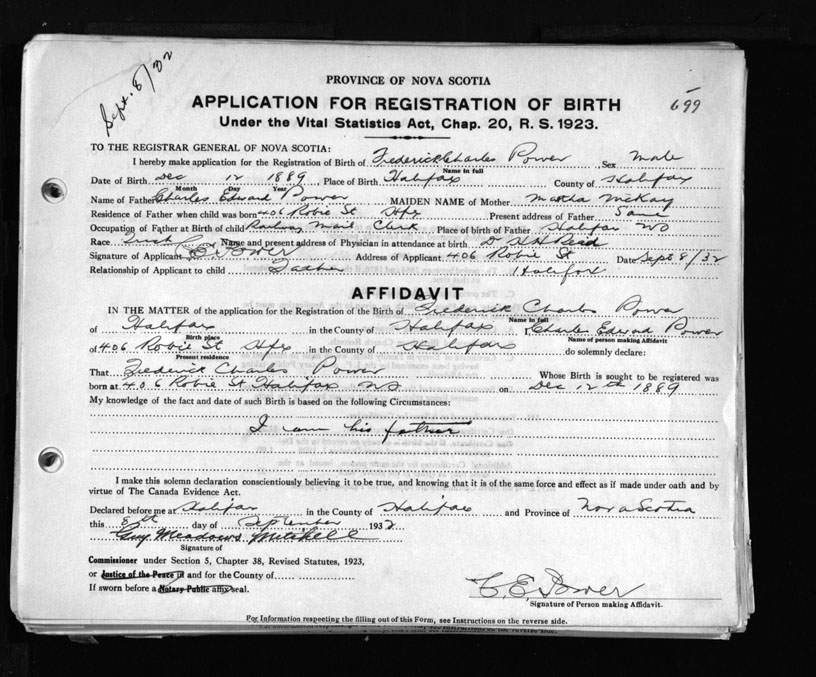 Sept. 8/32
PROVINCE OF NOVA SCOTIA
APPLICATION FOR REGISTRATION OF BIRTH
699
Under the Vital Statistics Act, Chap. 20, R. S. 1923.
TO THE REGISTRAR GENERAL OF NOVA SCOTIA:
I hereby make application for the Registration of Birth of Frederick Charles Power Sex Male
Name in full
Date of Birth Dec 12 1889 Place of Birth Halifax County of Halifax
Month Day Year
Name of Father Charles Edward Power MAIDEN NAME of Mother Martha McKay
Residence of Father when child was born 406 Robie St Hfx Present address of Father Same
Occupation of Father at Birth of child Railway Mail Clerk Place of birth of Father Halifax NS
Race Irish Name and present address of Physician in attendance at birth Dr H H Read
Signature of Applicant C E Power Address of Applicant 406 Robie St Date Sept 8/32
Relationship of Applicant to child Father Halifax
AFFIDAVIT
IN THE MATTER of the application for the Registration of the Birth of Frederick Charles Power
Name in full
of Halifax in the County of Halifax, Charles Edward Power
Birth place Name of person making Affidavit
of 406 Robie St Hfx in the County of Halifax do solemnly declare:
Present residence
That Frederick Charles Power Whose Birth is sought to be registered was
born at 406 Robie St Halifax NS on Dec 12th 1889
My knowledge of the fact and date of such Birth is based on the following Circumstances:
I am his father
I make this solemn declaration conscientiously believing it to be true, and knowing that it is of the same force and effect as if made under oath and by
virtue of The Canada Evidence Act.
Declared before me at Halifax in the County of Halifax and Province of Nova Scotia
this 8th day of September 1932
Guy Meadows Mitchell
Signature of
Commissioner under Section 5, Chapter 38, Revised Statutes, 1923,
or Justice of the Peace in and for the County of
If sworn before a Notary Public affix seal.
C. E. Power
Signature of Person making Affidavit.
For Information respecting the filling out of this Form, see Instructions on the reverse side.